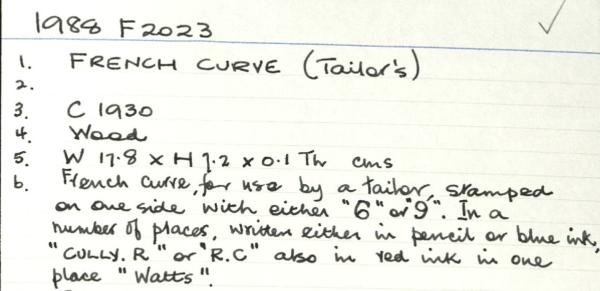 1988 F2023
1. FRENCH CURVE (Tailor's)
2.
3. C 1930
4. Wood
5. W 17.8 x H 7.2 x 0.1 Thr cms
6. French curve, for use by a tailor, stamped
on one side with either "6" or "9". In a
number of places, written either in pencil or blue ink,
"CULLY. R" or "R.C" also in red ink in one
place "Watts".